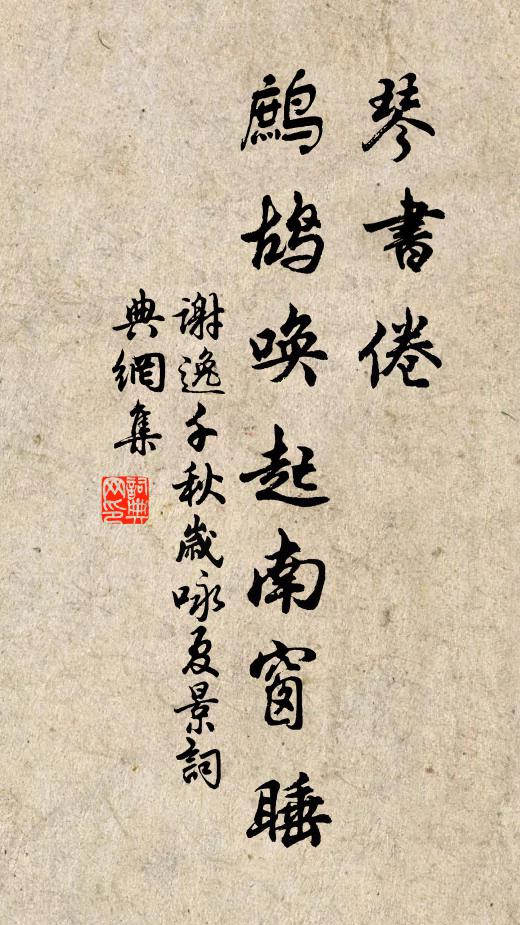 琴書倦
鷓鴣喚起南窗睡
謝逸千秋歲咏夏景詞
典網集
詞典網印